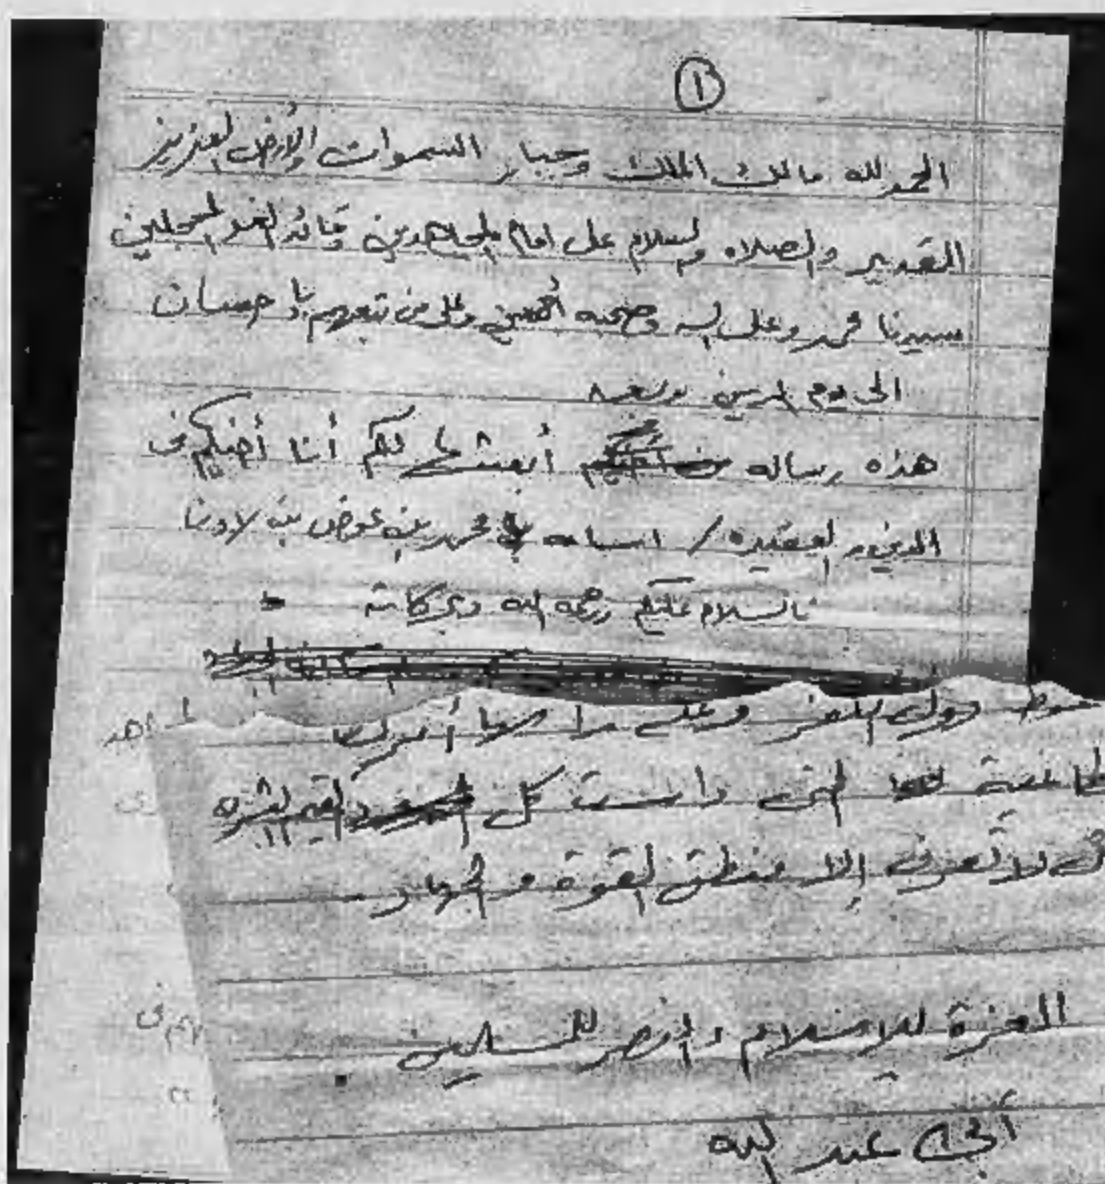 ١
الحمد لله مالك الملك وجبار السموات والأرض العزيز
القدير والصلاه والسلام على امام المجاهدين قائد الغر المحجلين
سيدنا محمد وعلى اله وصحبه أجمعين وعلى من تبعهم بإحسان
الى يوم الدين وبعد
هذه رساله أبعثها لكم أنا أخيكم في
الدين والعقيده / اسامه محمد بن عوض بن لادن
فالسلام عليكم ورحمة الله وبركاته
دول الكفر وعلى رأسها أمريكا
التي داست كل
لا تعرف إلا منطق القوة والجهاد
العزة للإسلام والنصر للمسلمين
أبي عبد الله